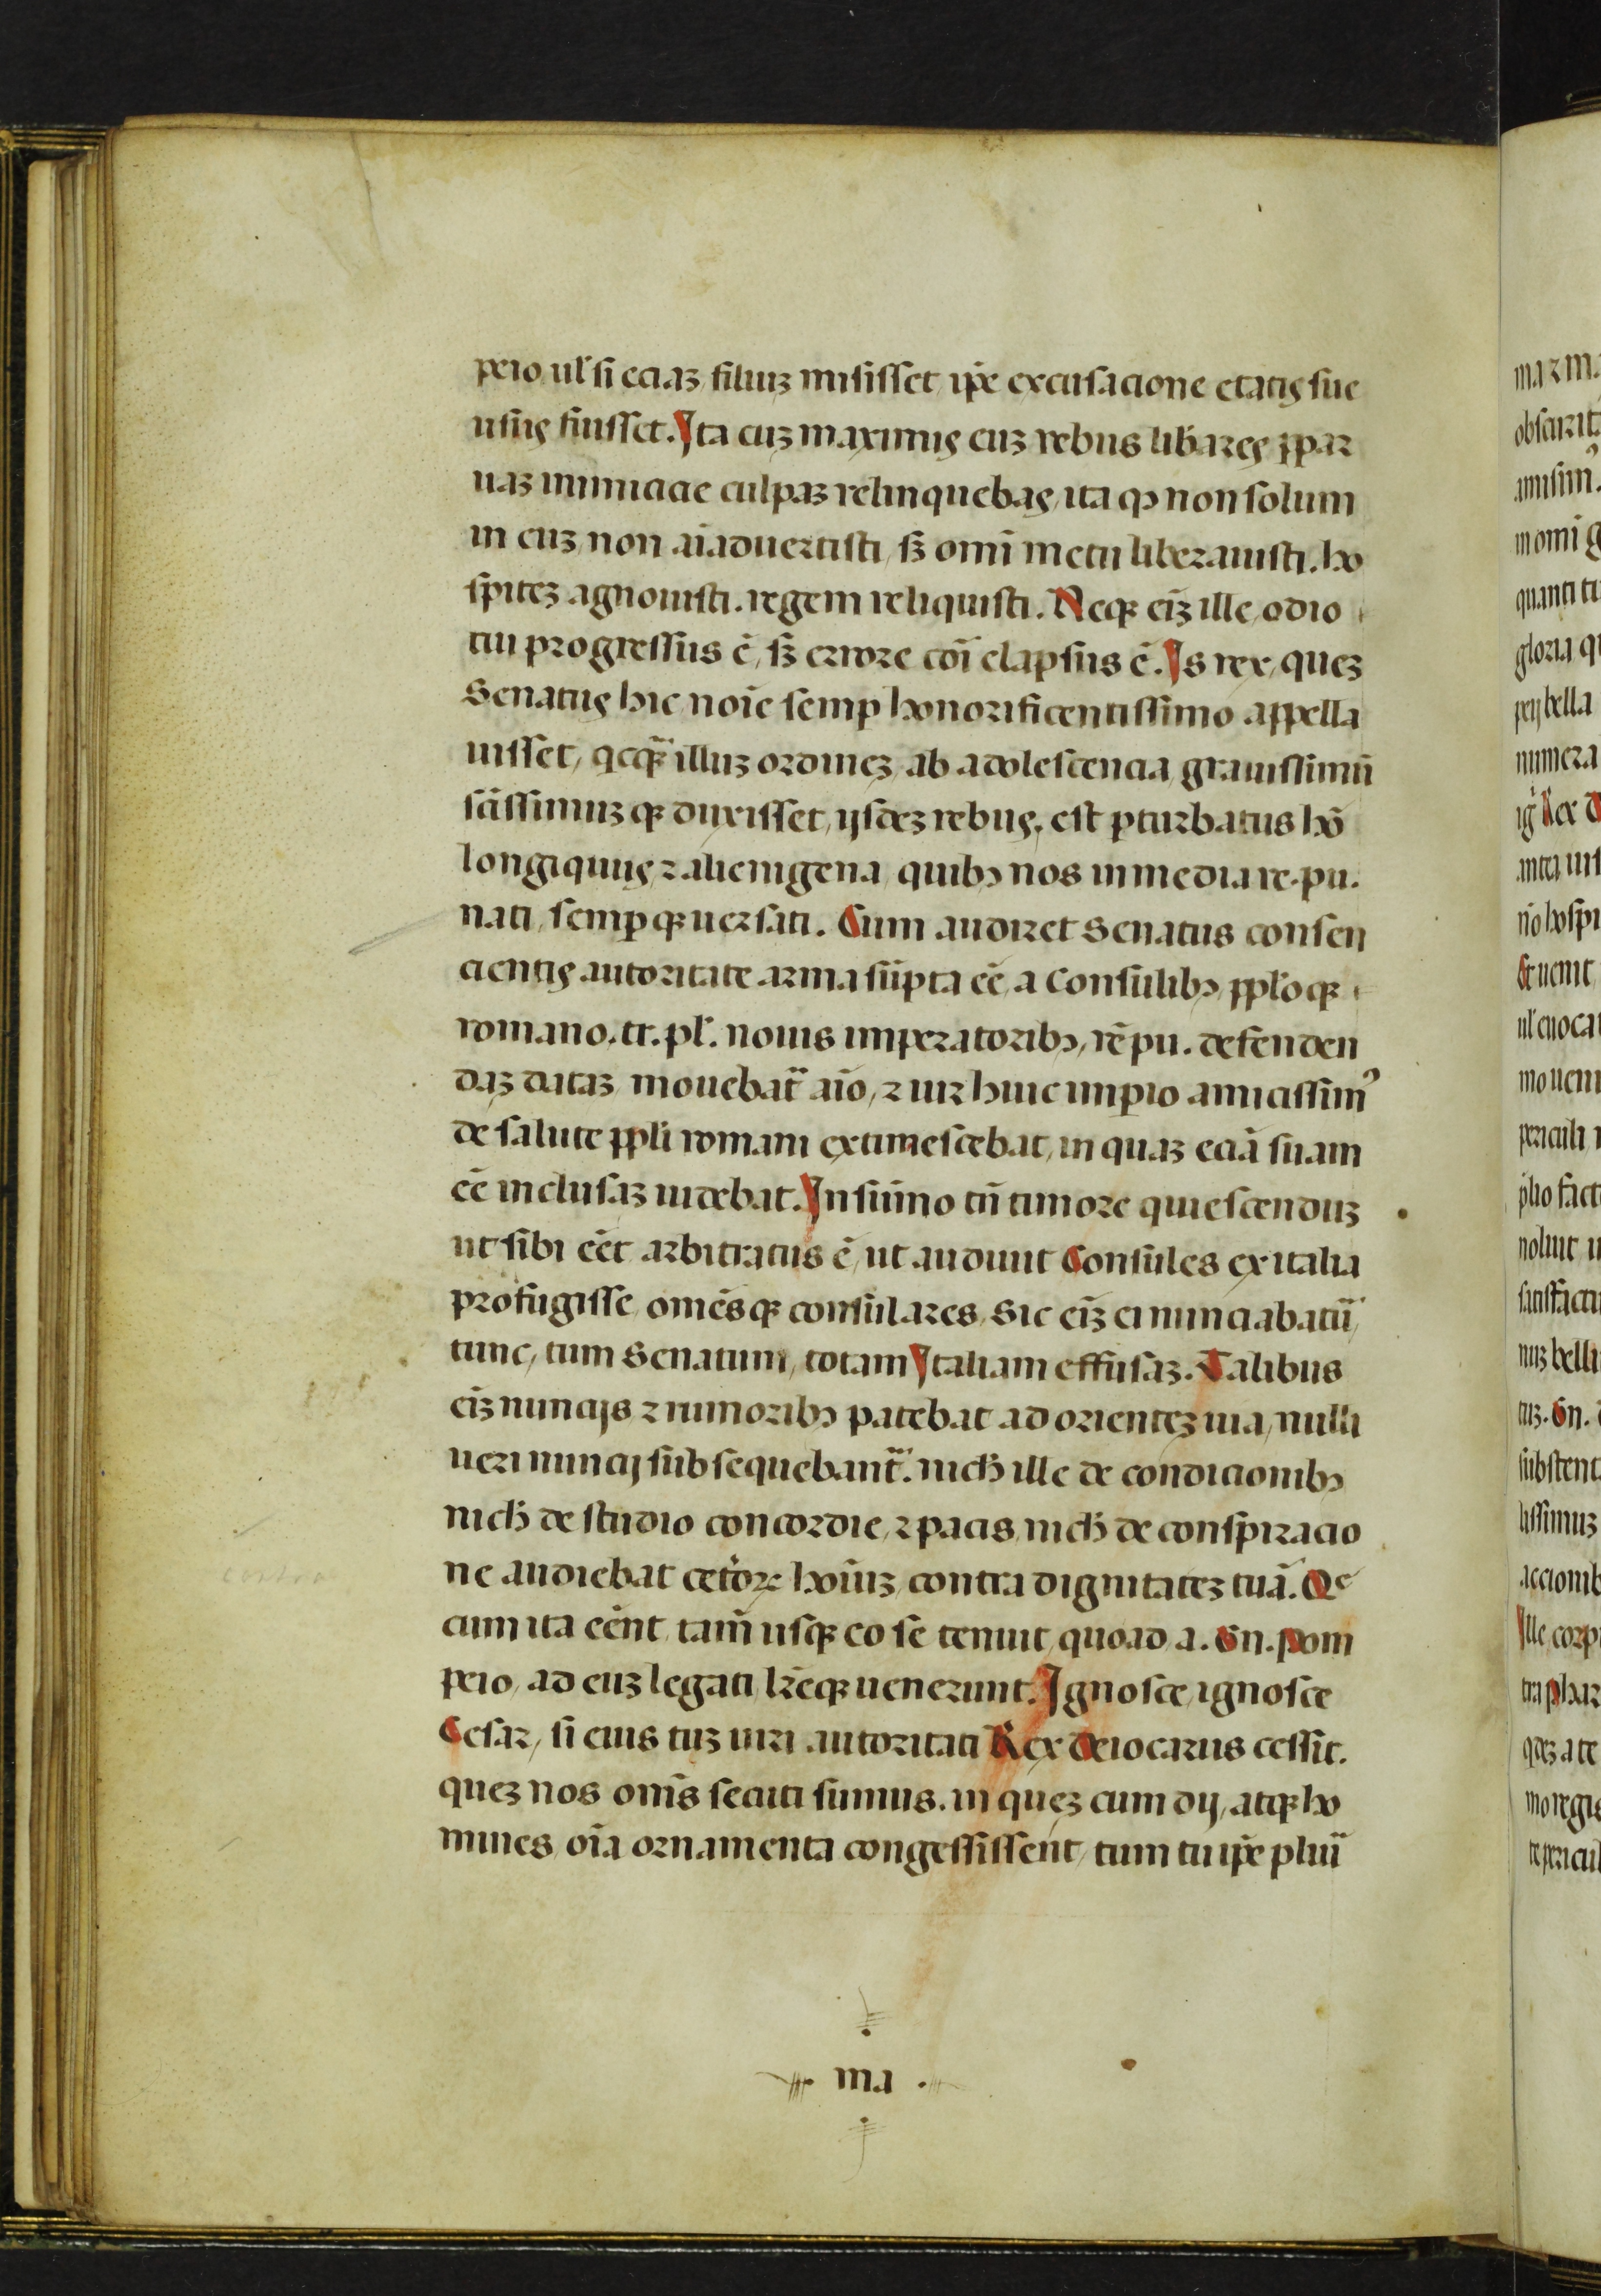 peio, ul̛ si eciaꝫ filiuꝫ misisset ip̄e excusacione etatis sue
usus fuisset. Ita cuꝫ maximis euꝫ rebus lib̄ares ꝑpar
uaꝫ inimicicie culpaꝫ relinquebas, ita qͦ non solum
in euꝫ non aīaduertisti, sꝫ omī metu liberauisti. ho
spiteꝫ agnouisti. regem reliquisti. Neqꝫ eīꝫ ille odio
tui progressus ē, sꝫ errore cōi elapsus ē. Is rex, queꝫ
Senatus hic noīe semꝑ honorificentissimo appella
uisset, qͥqꝫ illuꝫ ordineꝫ ab adolescencia grauissimū
sc̄issimuꝫqꝫ duxisset, ijsdeꝫ rebus, est ꝑturbatus hō
longiquus ⁊ alienigena quibꝫ nos in media re.pu.
nati, semꝑqꝫ uersati. Cum audiret Senatus consen
cientis autoritate arma sūpta eē, a Consulibꝫ, pplōqꝫ
romano. tr. pl̛. nouis imperatoribꝫ, rē pu. defenden
daꝫ dataꝫ mouebat̄ aīo, ⁊ uir huic imperio amicissimꝰ
de salute ppl̄i romani extimescebat, in quaꝫ eciā suam
eē inclusaꝫ uidebat. In sūmo tn̄ timore quiescenduꝫ
ut sibi eēt arbitratus ē, ut audiuit Consules ex italia
profugisse, omēsqꝫ consulares, Sic eīꝫ ei nunciabatū
tunc, tum Senatum, totam Italiam effusaꝫ. Talibus
eīꝫ nuncijs ⁊ rumoribꝫ patebat ad orienteꝫ uia, nulli
ueri nuncij subsequebant̄. nich̄ ille de condicionibꝫ
nich̄ de studio concordie, ⁊ pacis, nich̄ de conspiracio
ne audiebat cetōꝝ hoīuꝫ contra dignitateꝫ tuā. Qͤ
cum ita eēnt, tam̄ usqꝫ eo se tenuit, quoad a. Gn. Pom
peio, ad euꝫ legati, lr̄eqꝫ uenerunt. Ignosce, ignosce
Cesar, si eius tuꝫ uiri autoritati Rex Deiotarus cessit.
queꝫ nos om̄s secuti sumus. in queꝫ cum dij, atqꝫ ho
mines, oīa ornamenta congessissent, tum tu ip̄e pluī
ma